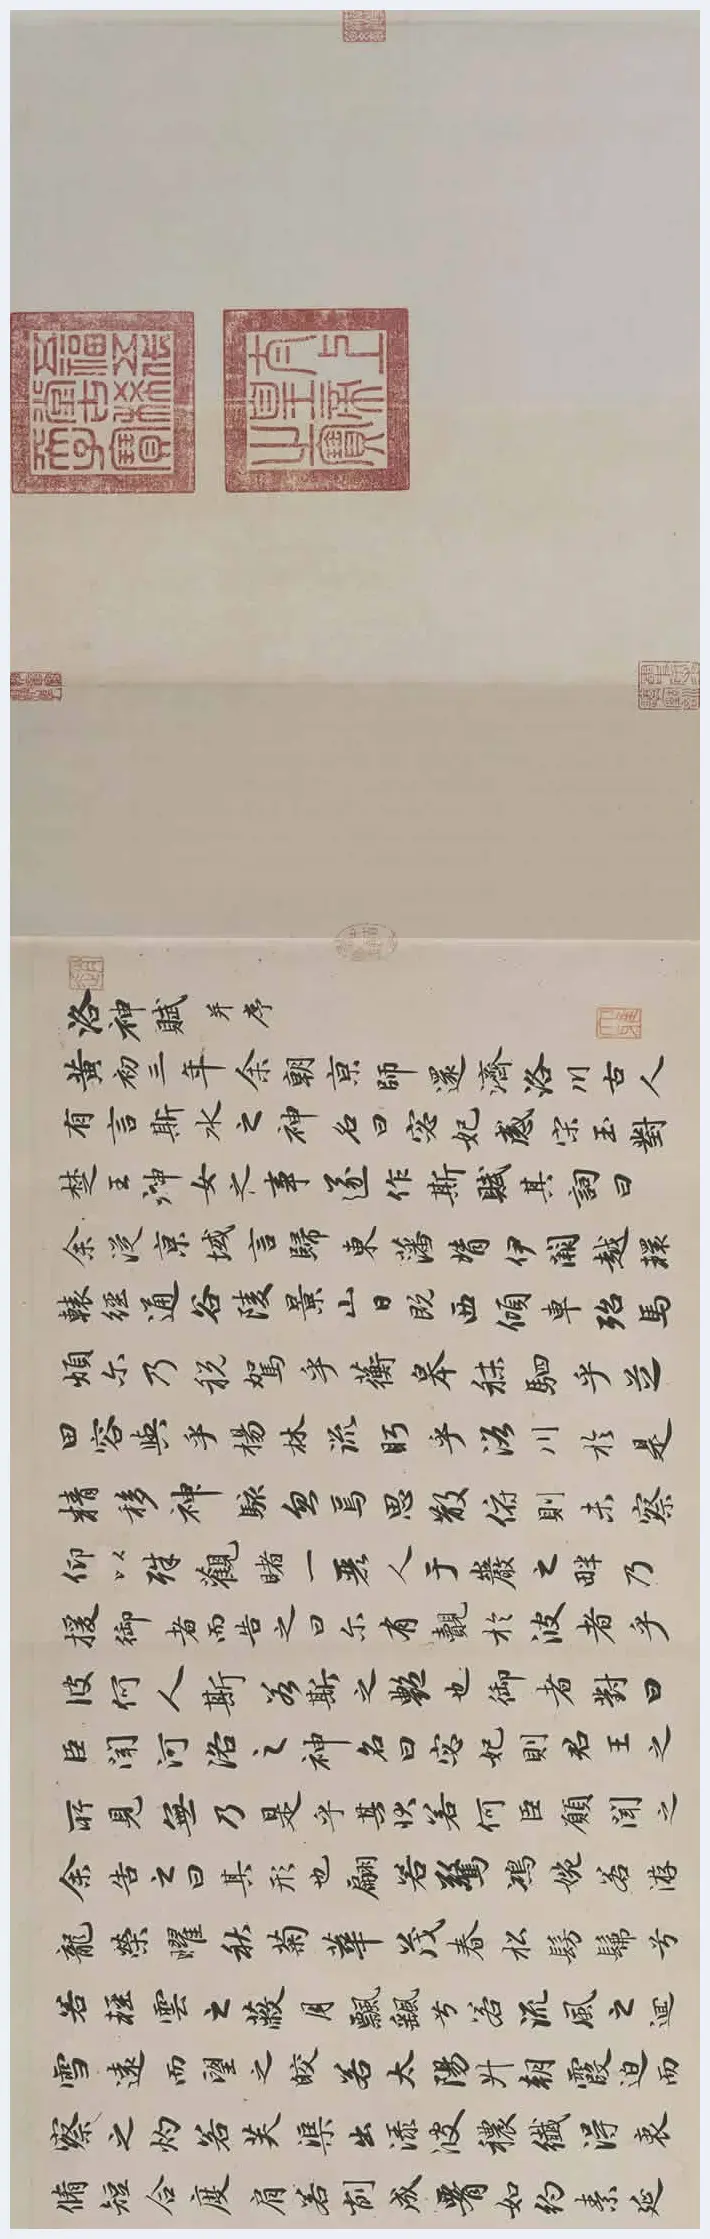 五福五代堂古稀天子寶
太上皇帝之寶
洛神賦 并序
黃初三年余朝京師還濟洛川古人
有言斯水之神名曰宓妃感宋玉對
楚王神女之事遂作斯賦其詞曰
余從京域言歸東藩背伊闕越轘
轅經通谷陵景山日既西傾車殆馬
煩尔乃稅駕乎蘅皋秣駟乎芝
田容與乎楊林流眄乎洛川於是
精移神駭忽焉思散俯則未察
仰以殊觀睹一麗人于巖之畔乃
援御者而告之曰尔有覿於彼者乎
彼何人斯若斯之艷也御者對曰
臣聞河洛之神名曰宓妃則君王之
所見無乃是乎其狀若何臣願聞之
余告之曰其形也翩若驚鴻婉若游
龍榮曜秋菊華茂春松髣髴兮
若輕雲之蔽月飄颻兮若流風之迴
雪遠而望之皎若太陽升朝霞迫而
察之灼若芙蕖出淥波穠纖得衷
脩短合度肩若削成腰如約素延